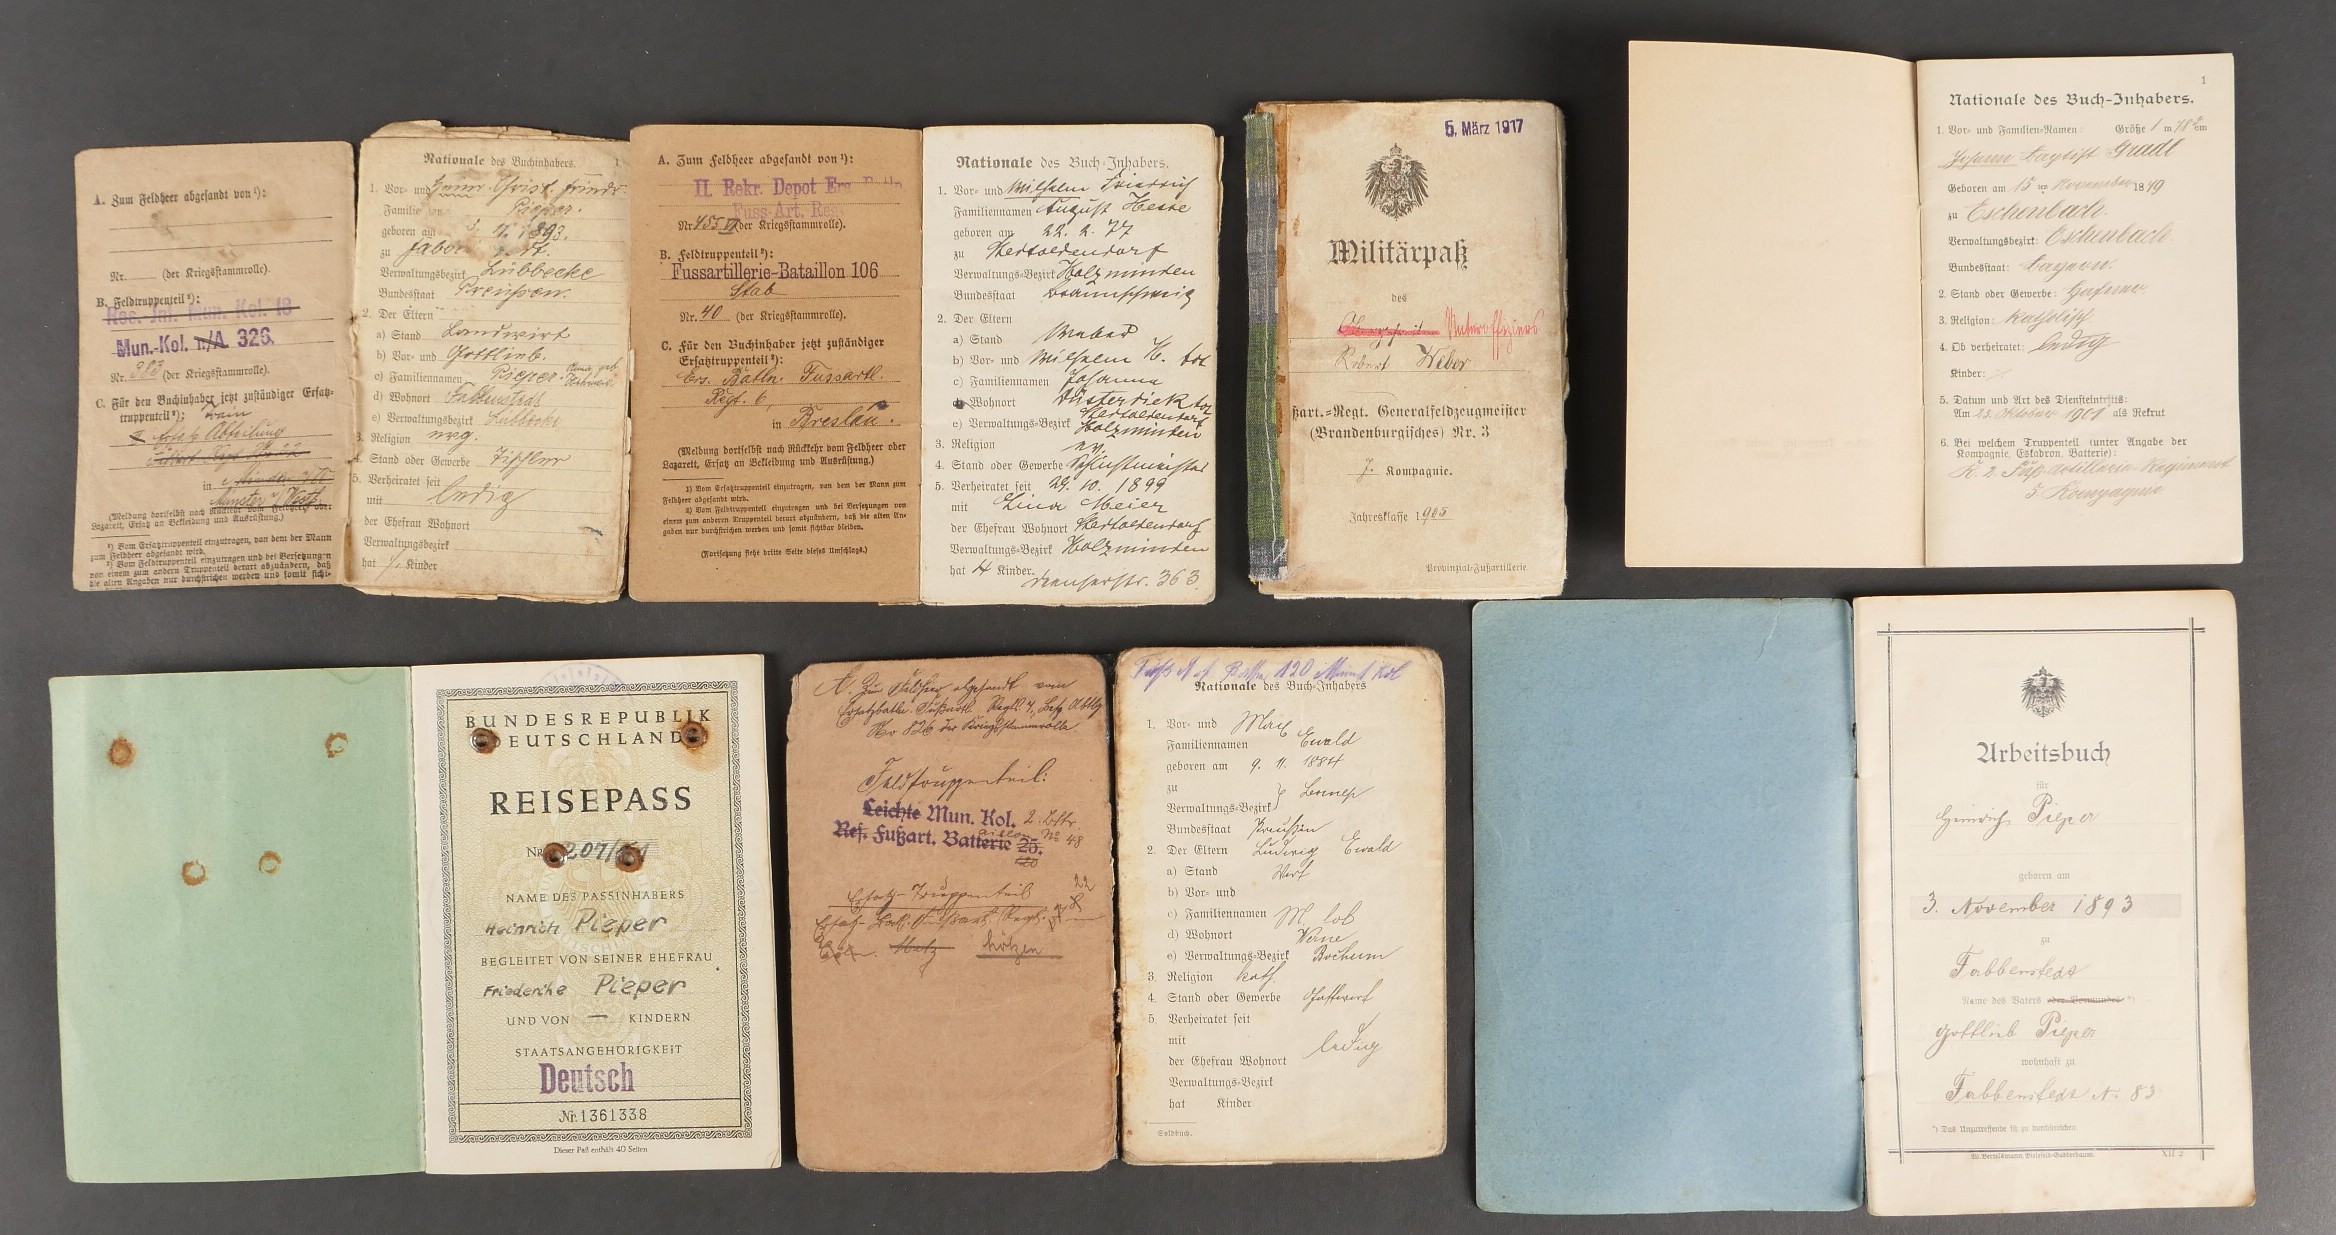 A. Zum Feldheer abgesandt von ¹):
Nr. (der Kriegsstammrolle).
B. Feldtruppenteil ²):
Res. Inf. Mun. Kol. 18
Mun.-Kol. 326.
Nr. 383 (der Kriegsstammrolle).
C. Für den Buchinhaber jetzt zuständiger Ersatz-
truppenteil ²):
Ersatz Abteilung
in Minden
Münster i/Westf.
(Meldung dortselbst nach Rückkehr vom Feldheer oder
Lazarett, Ersatz an Bekleidung und Ausrüstung.)
¹) Vom Ersatztruppenteil einzutragen, von dem der Mann
zum Feldheer abgesandt wird.
²) Vom Feldtruppenteil einzutragen und bei Versetzungen
von einem zum anderen Truppenteil derart abzuändern, daß
die alten Angaben nur durchstrichen werden und somit sicht-
Nationale des Buchinhabers. 1
1. Vor- und Heinr. Christ. Friedr.
Familie Pieper.
geboren am 3. 1893.
zu
Verwaltungsbezirk Lübbecke
Bundesstaat Preußen.
2. Der Eltern
a) Stand Landwirt
b) Vor- und Gottlieb.
c) Familiennamen Pieper
d) Wohnort
e) Verwaltungsbezirk Lübbecke
3. Religion evg.
4. Stand oder Gewerbe Tischler
5. Verheiratet seit
mit ledig
der Ehefrau Wohnort
Verwaltungsbezirk
hat Kinder
A. Zum Feldheer abgesandt von ¹):
II. Rekr. Depot Ers. Batln.
Fuss-Art. Reg.
Nr. 455 (der Kriegsstammrolle).
B. Feldtruppenteil ²):
Fussartillerie-Bataillon 106
Stab
Nr. 40 (der Kriegsstammrolle).
C. Für den Buchinhaber jetzt zuständiger
Ersatztruppenteil ²):
Ers. Batln. Fussartl.
Regt. 6,
in Breslau.
(Meldung dortselbst nach Rückkehr vom Feldheer oder
Lazarett, Ersatz an Bekleidung und Ausrüstung.)
¹) Vom Ersatztruppenteil einzutragen, von dem der Mann zum
Feldheer abgesandt wird.
²) Vom Feldtruppenteil einzutragen und bei Versetzungen von
einem zum anderen Truppenteil derart abzuändern, daß die alten An-
gaben nur durchstrichen werden und somit sichtbar bleiben.
(Fortsetzung siehe dritte Seite dieses Umschlags.)
Nationale des Buch-Inhabers.
1. Vor- und Wilhelm Friedrich
Familiennamen August Hesse
geboren am 22. 2. 77
zu Stadtoldendorf
Verwaltungs-Bezirk Holzminden
Bundesstaat Braunschweig
2. Der Eltern
a) Stand
b) Vor- und Wilhelm H. tot
c) Familiennamen Johanna
d) Wohnort Düsterdiek tot
Stadtoldendorf
e) Verwaltungs-Bezirk Holzminden
3. Religion ev.
4. Stand oder Gewerbe
5. Verheiratet seit 29. 10. 1899
mit Lina Meier
der Ehefrau Wohnort Stadtoldendorf
Verwaltungs-Bezirk Holzminden
hat 4 Kinder.
363
5. März 1917
Militärpaß
des
Unteroffiziers
Robert Weber
ßart.-Regt. Generalfeldzeugmeister
(Brandenburgisches) Nr. 3
7. Kompagnie.
Jahresklasse 1905
Provinzial-Fußartillerie
1
Nationale des Buch-Inhabers.
1. Vor- und Familien-Namen: Größe 1 m 78 cm
Johann Baptist Gradl
Geboren am 15 ten November 1849
zu Eschenbach.
Verwaltungsbezirk: Eschenbach.
Bundesstaat: Bayern.
2. Stand oder Gewerbe: Hafner.
3. Religion: katholisch
4. Ob verheiratet: ledig
Kinder:
5. Datum und Art des Diensteintritts:
Am 23. Oktober 1901 als Rekrut
6. Bei welchem Truppenteil (unter Angabe der
Kompagnie, Eskadron, Batterie):
K. 2. Fußartillerie-Regiment
5. Kompagnie
BUNDESREPUBLIK
DEUTSCHLAND
REISEPASS
Nr. 207/
NAME DES PASSINHABERS
Heinrich Pieper
BEGLEITET VON SEINER EHEFRAU
Friederike Pieper
UND VON — KINDERN
STAATSANGEHÖRIGKEIT
Deutsch
Nr. 1361338
Dieser Paß enthält 40 Seiten
A. Zum Feldheer abgesandt vom
Ersatzbatln. Fußartl. Regts.
No 826 der Kriegsstammrolle
Feldtruppenteil:
Leichte Mun. Kol. 2. Battr
Res. Fußart. Batterie 25. No 48
Ersatz-Truppenteil
Ersatz-Batl. Fußart. Regt.
Metz
Nationale des Buch-Inhabers
1. Vor- und Max
Familiennamen Ewald
geboren am 9. 11. 1884
zu Lennep
Verwaltungs-Bezirk
Bundesstaat Preußen
2. Der Eltern Ludwig Ewald
a) Stand Wirt
b) Vor- und
c) Familiennamen
d) Wohnort Werne
e) Verwaltungs-Bezirk Bochum
3. Religion kath.
4. Stand oder Gewerbe Gastwirt
5. Verheiratet seit
mit ledig
der Ehefrau Wohnort
Verwaltungs-Bezirk
hat Kinder
Soldbuch.
Arbeitsbuch
für
Heinrich Pieper
geboren am
3. November 1893
zu
Fabbenstedt
Name des Vaters oder Vormundes *)
Gottlieb Pieper
wohnhaft zu
Fabbenstedt Nr. 83
*) Das Unzutreffende ist zu durchstreichen.
W. Bertelsmann, Bielefeld-Gadderbaum. XII 2